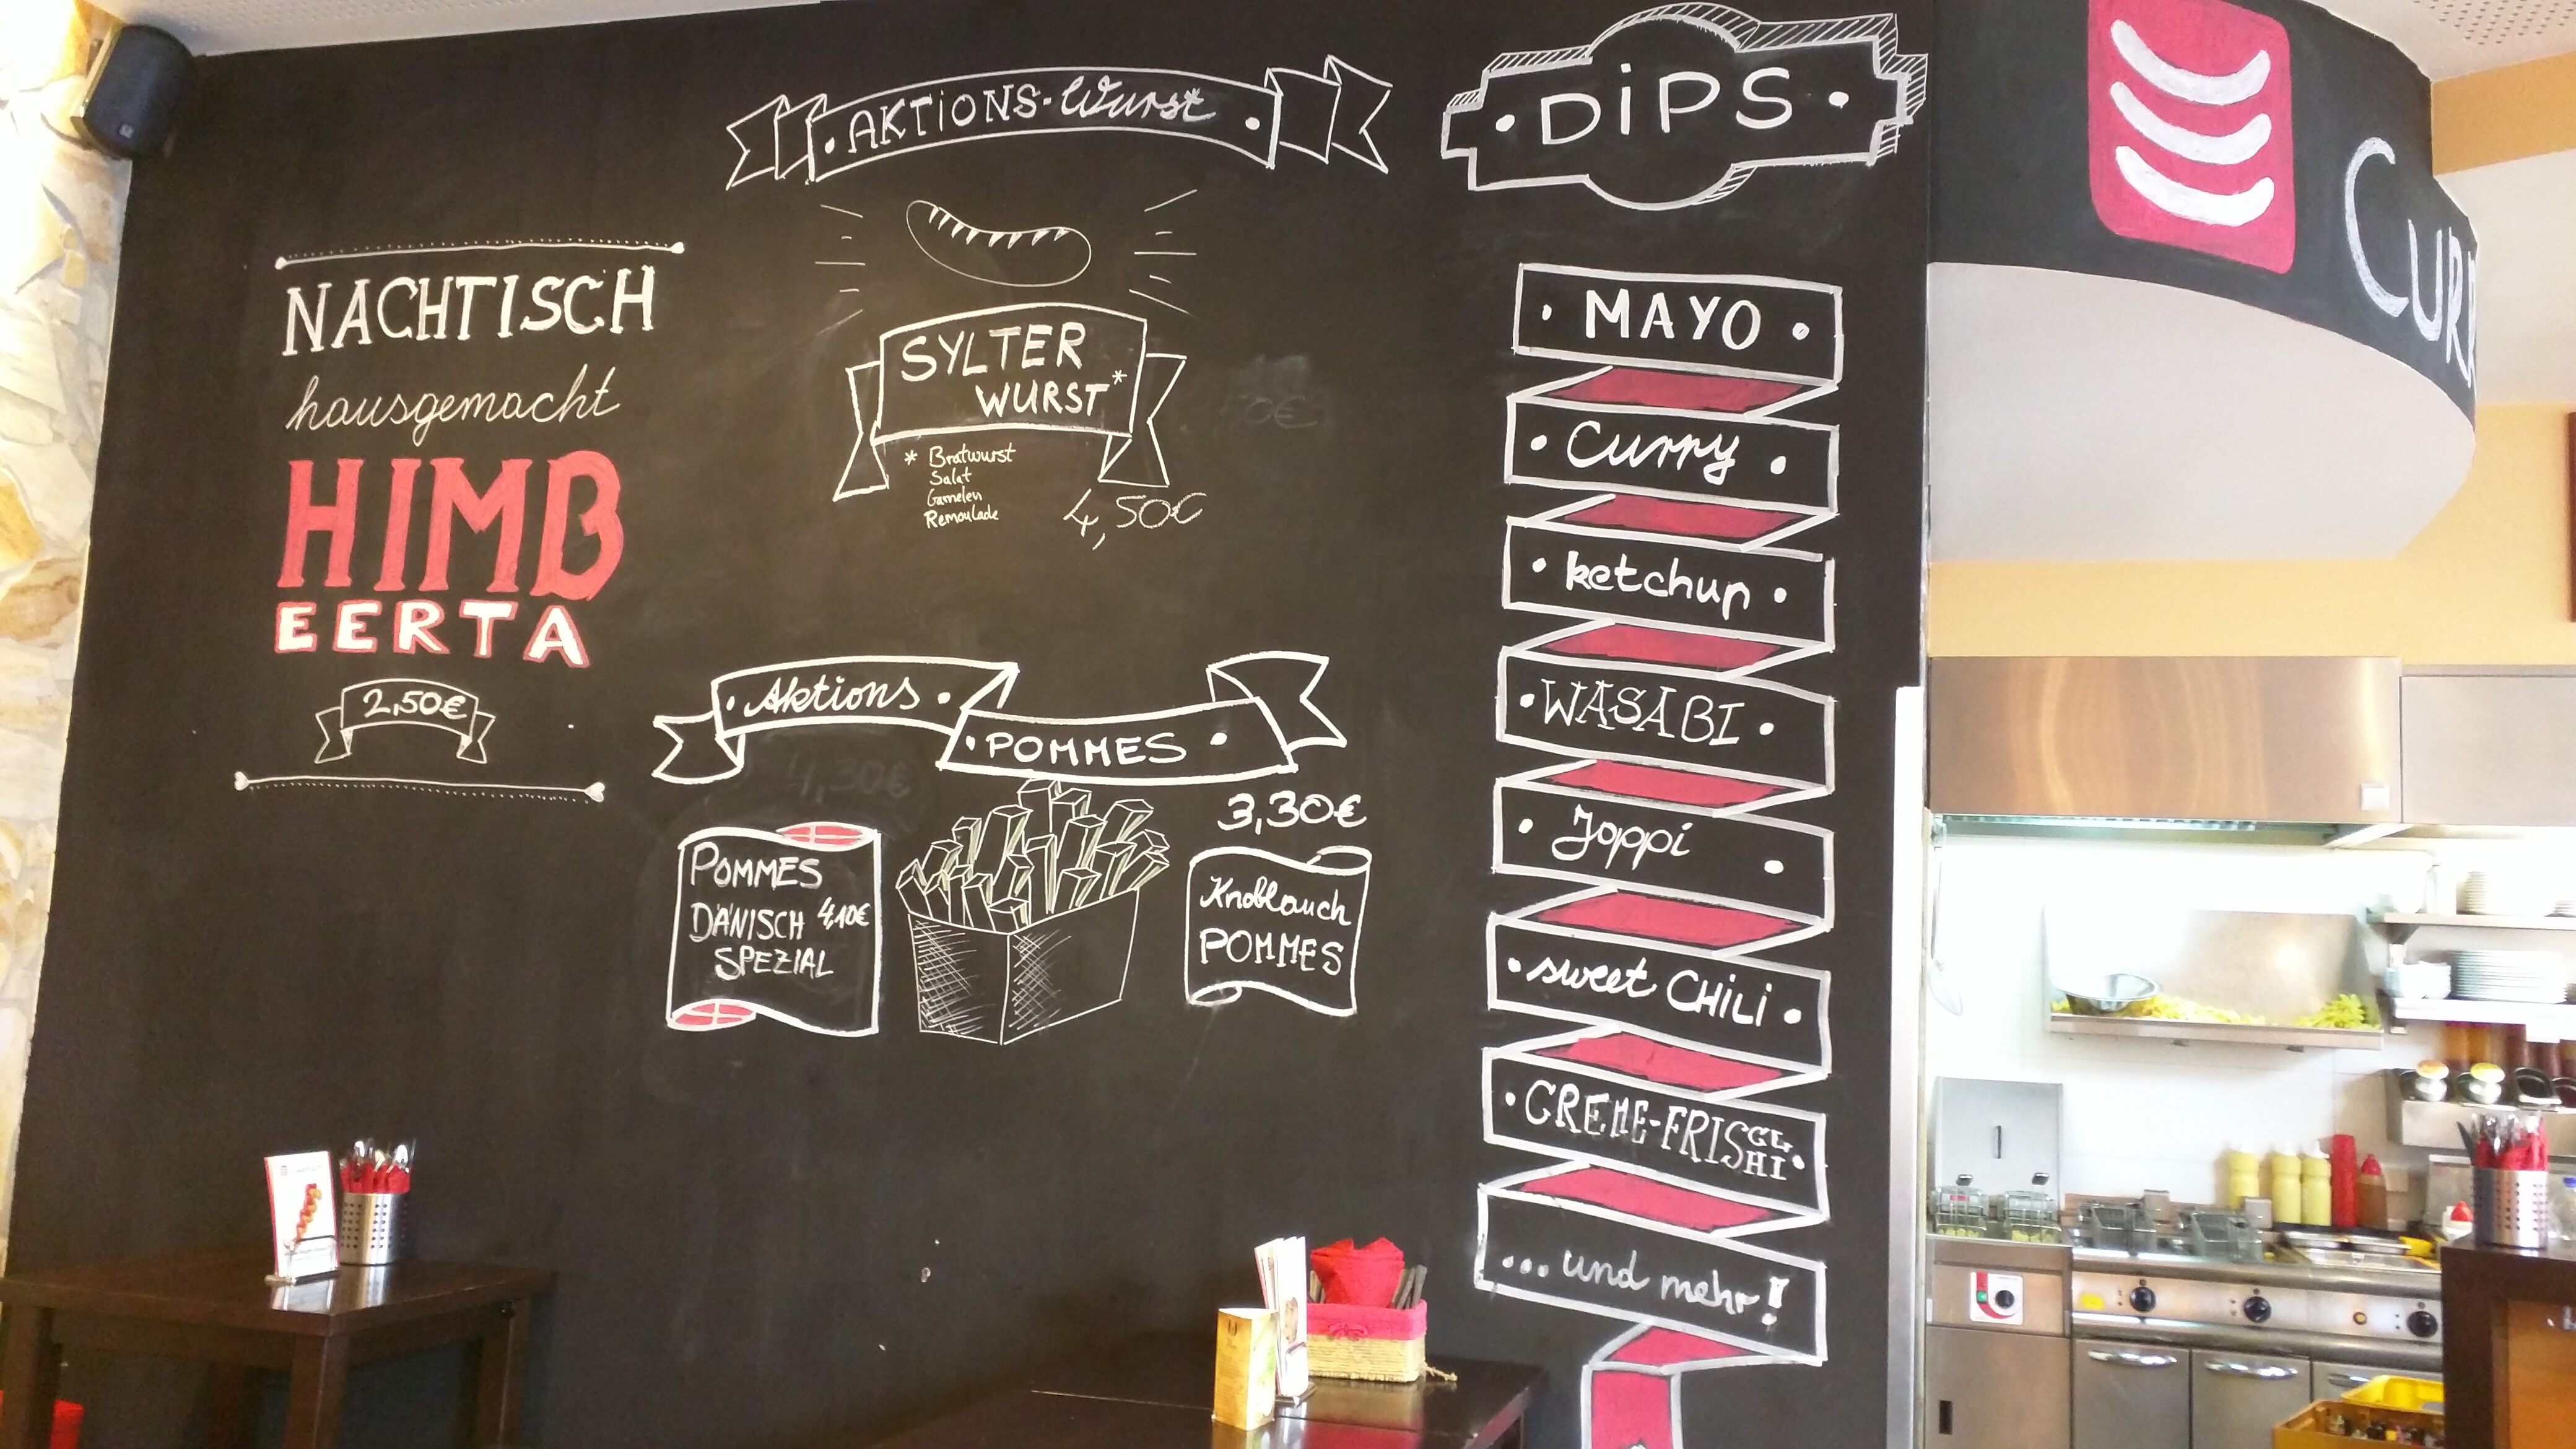 NACHTISCH
hausgemacht
HIMB
EERTA
2,50€
AKTIONS-Wurst
SYLTER
WURST*
* Bratwurst
Salat
Garnelen
Remoulade
4,50€
Aktions
POMMES
4,30€
POMMES
DÄNISCH 4,10€
SPEZIAL
3,30€
Knoblauch
POMMES
DiPS
MAYO
Curry
ketchup
WASABI
Joppi
sweet CHiLi
CREME-FRISCL
HI
... und mehr!
CURR